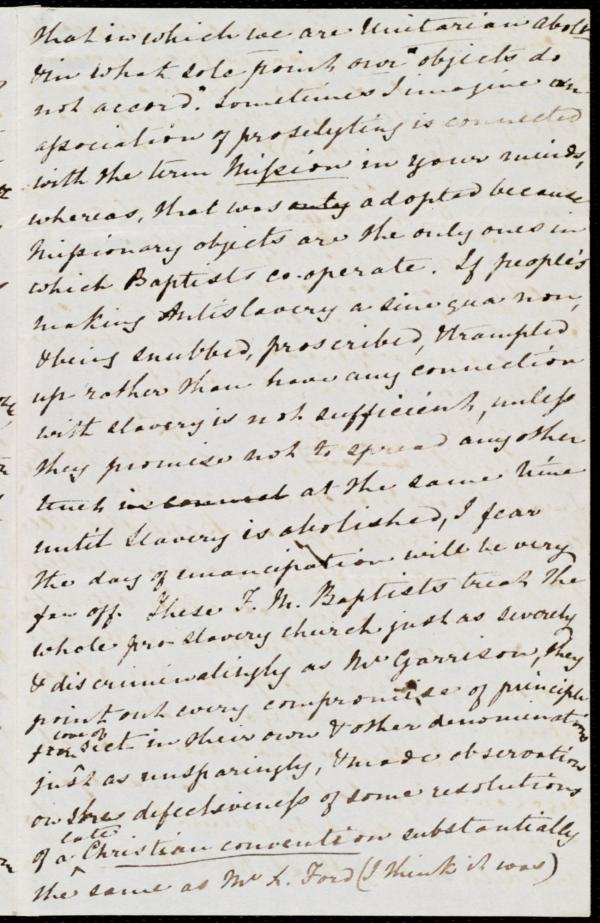 that in which we are Unitarian abol
& in what sole point our "objects do
not accord". Sometimes I imagine an
association of proselyting is connected
with the term Mission in your minds,
whereas, that was only adopted because
Missionary objects are the only ones in
which Baptists co-operate. If people's
making Antislavery a sine qua non,
& being snubbed, proscribed, & trampled
up rather than have any connection
with slavery is not sufficient, unless
they promise not to spread any other
truth at the same time
until Slavery is abolished, I fear
the day of emancipation will be very
far off. These F. M. Baptists treat the
whole pro-slavery church just as severely
& discriminatingly as Mr Garrison, they
point out every compromise of principle
sect in their own & other denominations
just as unsparingly, & made observation
on the defectiveness of some resolutions
of a late Christian convention substantially
the same as Mr L. Ford (I think it was)